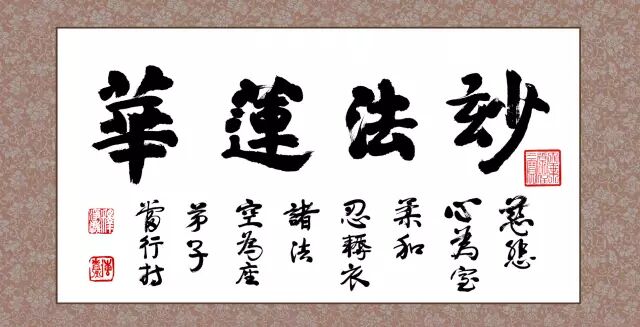 玅法蓮華
慈悲
心為室
柔和
忍辱衣
諸法
空為座
弟子
當行持